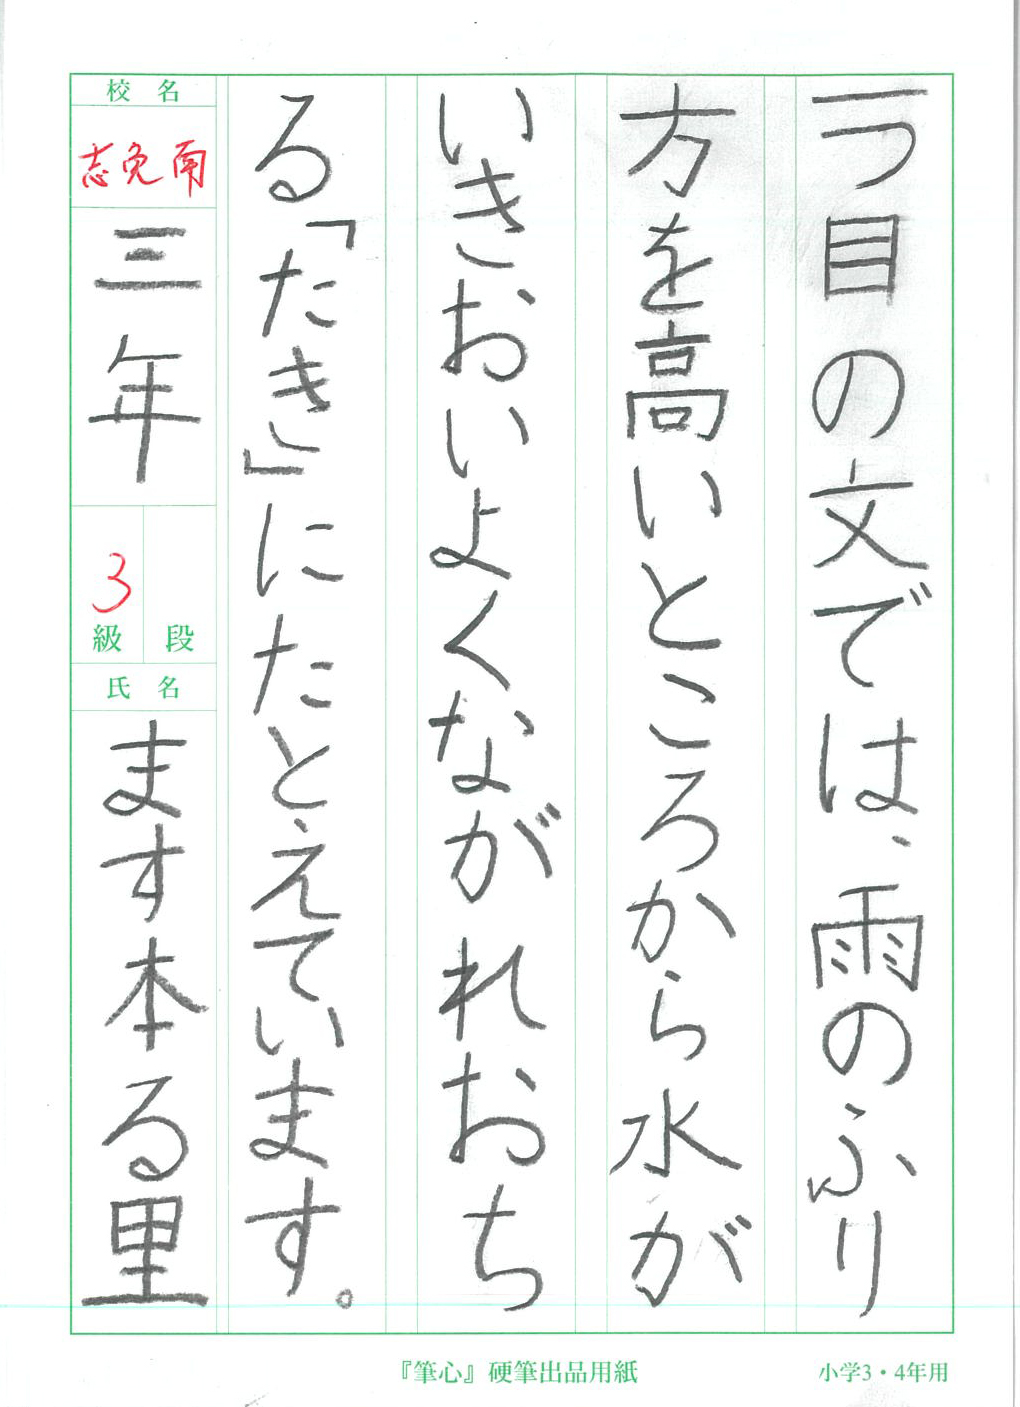 一つ目の文では、雨のふり
方を高いところから水が
いきおいよくながれおち
る「たき」にたとえています。
校名
志免南
三年
3
級
段
氏名
ます本る里
『筆心』硬筆出品用紙
小学3・4年用